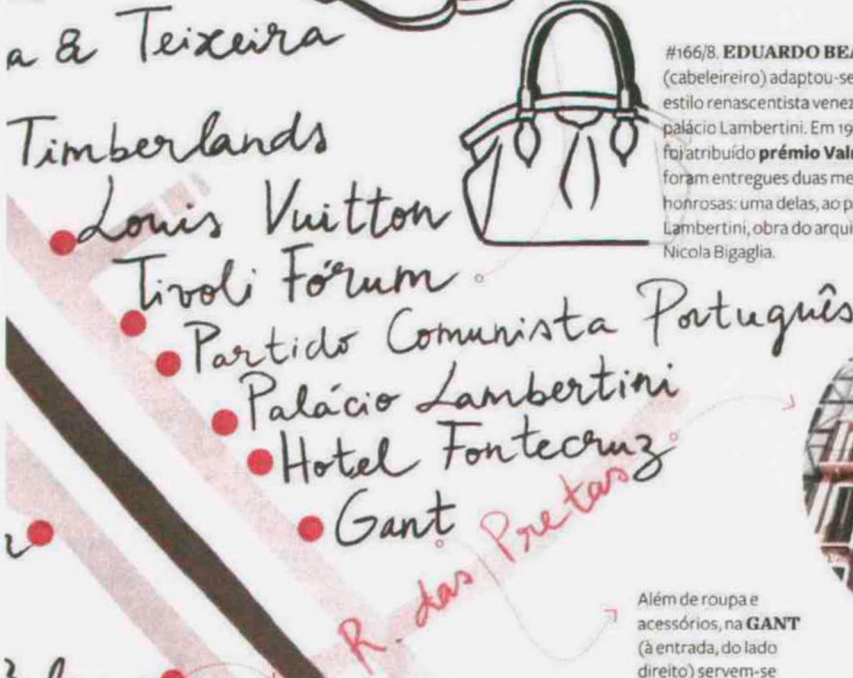 a & Teixeira
Timberlands
Louis Vuitton
Tivoli Fórum
Partido Comunista Português
Palácio Lambertini
Hotel Fontecruz
Gant
R. das Pretas
#166/8. EDUARDO BEA
(cabeleireiro) adaptou-se
estilo renascentista venez
palácio Lambertini. Em 19
foi atribuído prémio Val
foram entregues duas me
honrosas: uma delas, ao p
Lambertini, obra do arqui
Nicola Bigaglia.
Além de roupa e
acessórios, na GANT
(à entrada, do lado
direito) servem-se